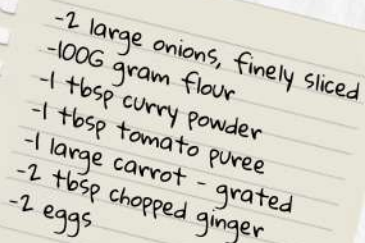 -2 large onions, finely sliced
-100G gram flour
-1 tbsp curry powder
-1 tbsp tomato puree
-1 large carrot - grated
-2 tbsp chopped ginger
-2 eggs